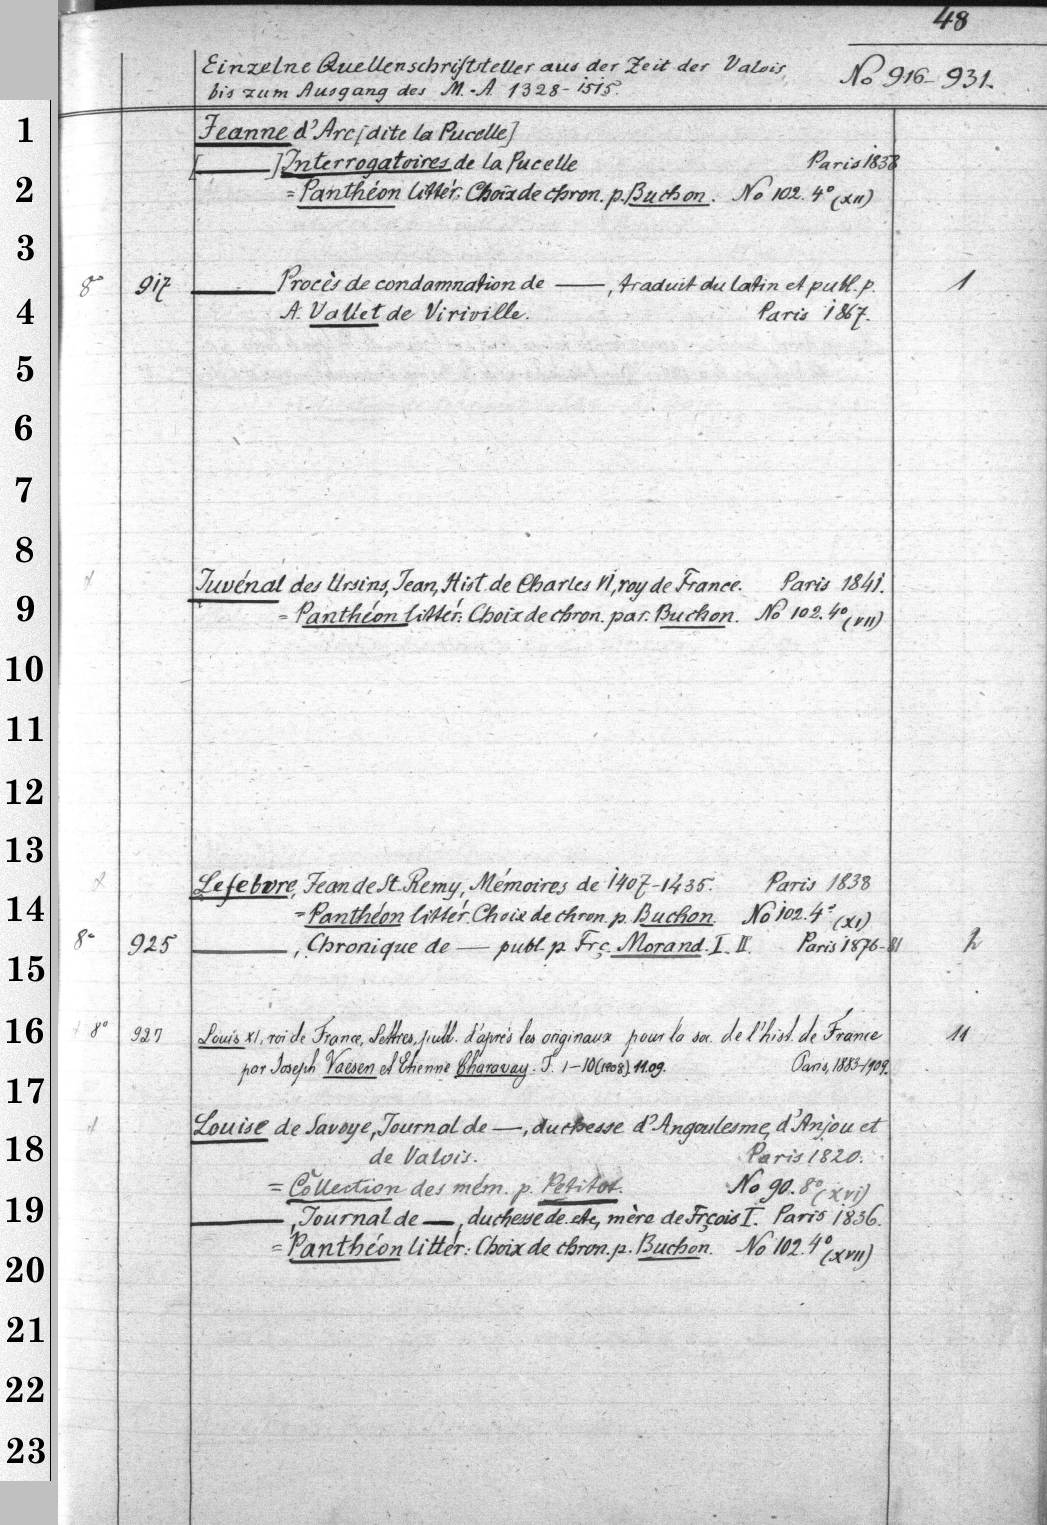 48
Einzelne Quellenschriftsteller aus der Zeit der Valois
No 916-931.
bis zum Ausgang des M.-A. 1328-1515.
1
Jeanne d'Arc [dite la Pucelle]
[———] Interrogatoires de la Pucelle Paris 1838
2
= Panthéon littér: Choix de chron. p. Buchon. No 102. 4° (XII)
3
8° 917 ——— Procès de condamnation de ——, traduit du latin et publ. p. 1
4
A. Vallet de Viriville. Paris 1867.
5
6
7
8
Juvénal des Ursins, Jean, Hist. de Charles VI, roy de France. Paris 1841.
9
= Panthéon littér: Choix de chron. par. Buchon. No 102. 4° (VII)
10
11
12
13
Lefebvre, Jean de St. Remy, Mémoires de 1407-1435. Paris 1838
14
= Panthéon littér. Choix de chron. p. Buchon. No 102. 4° (XI)
8° 925 ———, Chronique de —— publ. p. Frç. Morand. I. II. Paris 1876-81 2
15
16
8° 927 Louis XI, roi de France, Lettres, publ. d'après les originaux pour la soc. de l'hist. de France 11
par Joseph Vaesen et Etienne Charavay. T. 1-10 (1908). 11.09. Paris, 1883-1909.
17
Louise de Savoye, Journal de ——, duchesse d'Angoulesme, d'Anjou et
18
de Valois. Paris 1820.
= Collection des mém. p. Petitot. No 90. 8° (XVI)
19
———, Journal de ——, duchesse de etc, mère de Frçois I. Paris 1836.
= Panthéon littér: Choix de chron. p. Buchon. No 102. 4° (XVII)
20
21
22
23